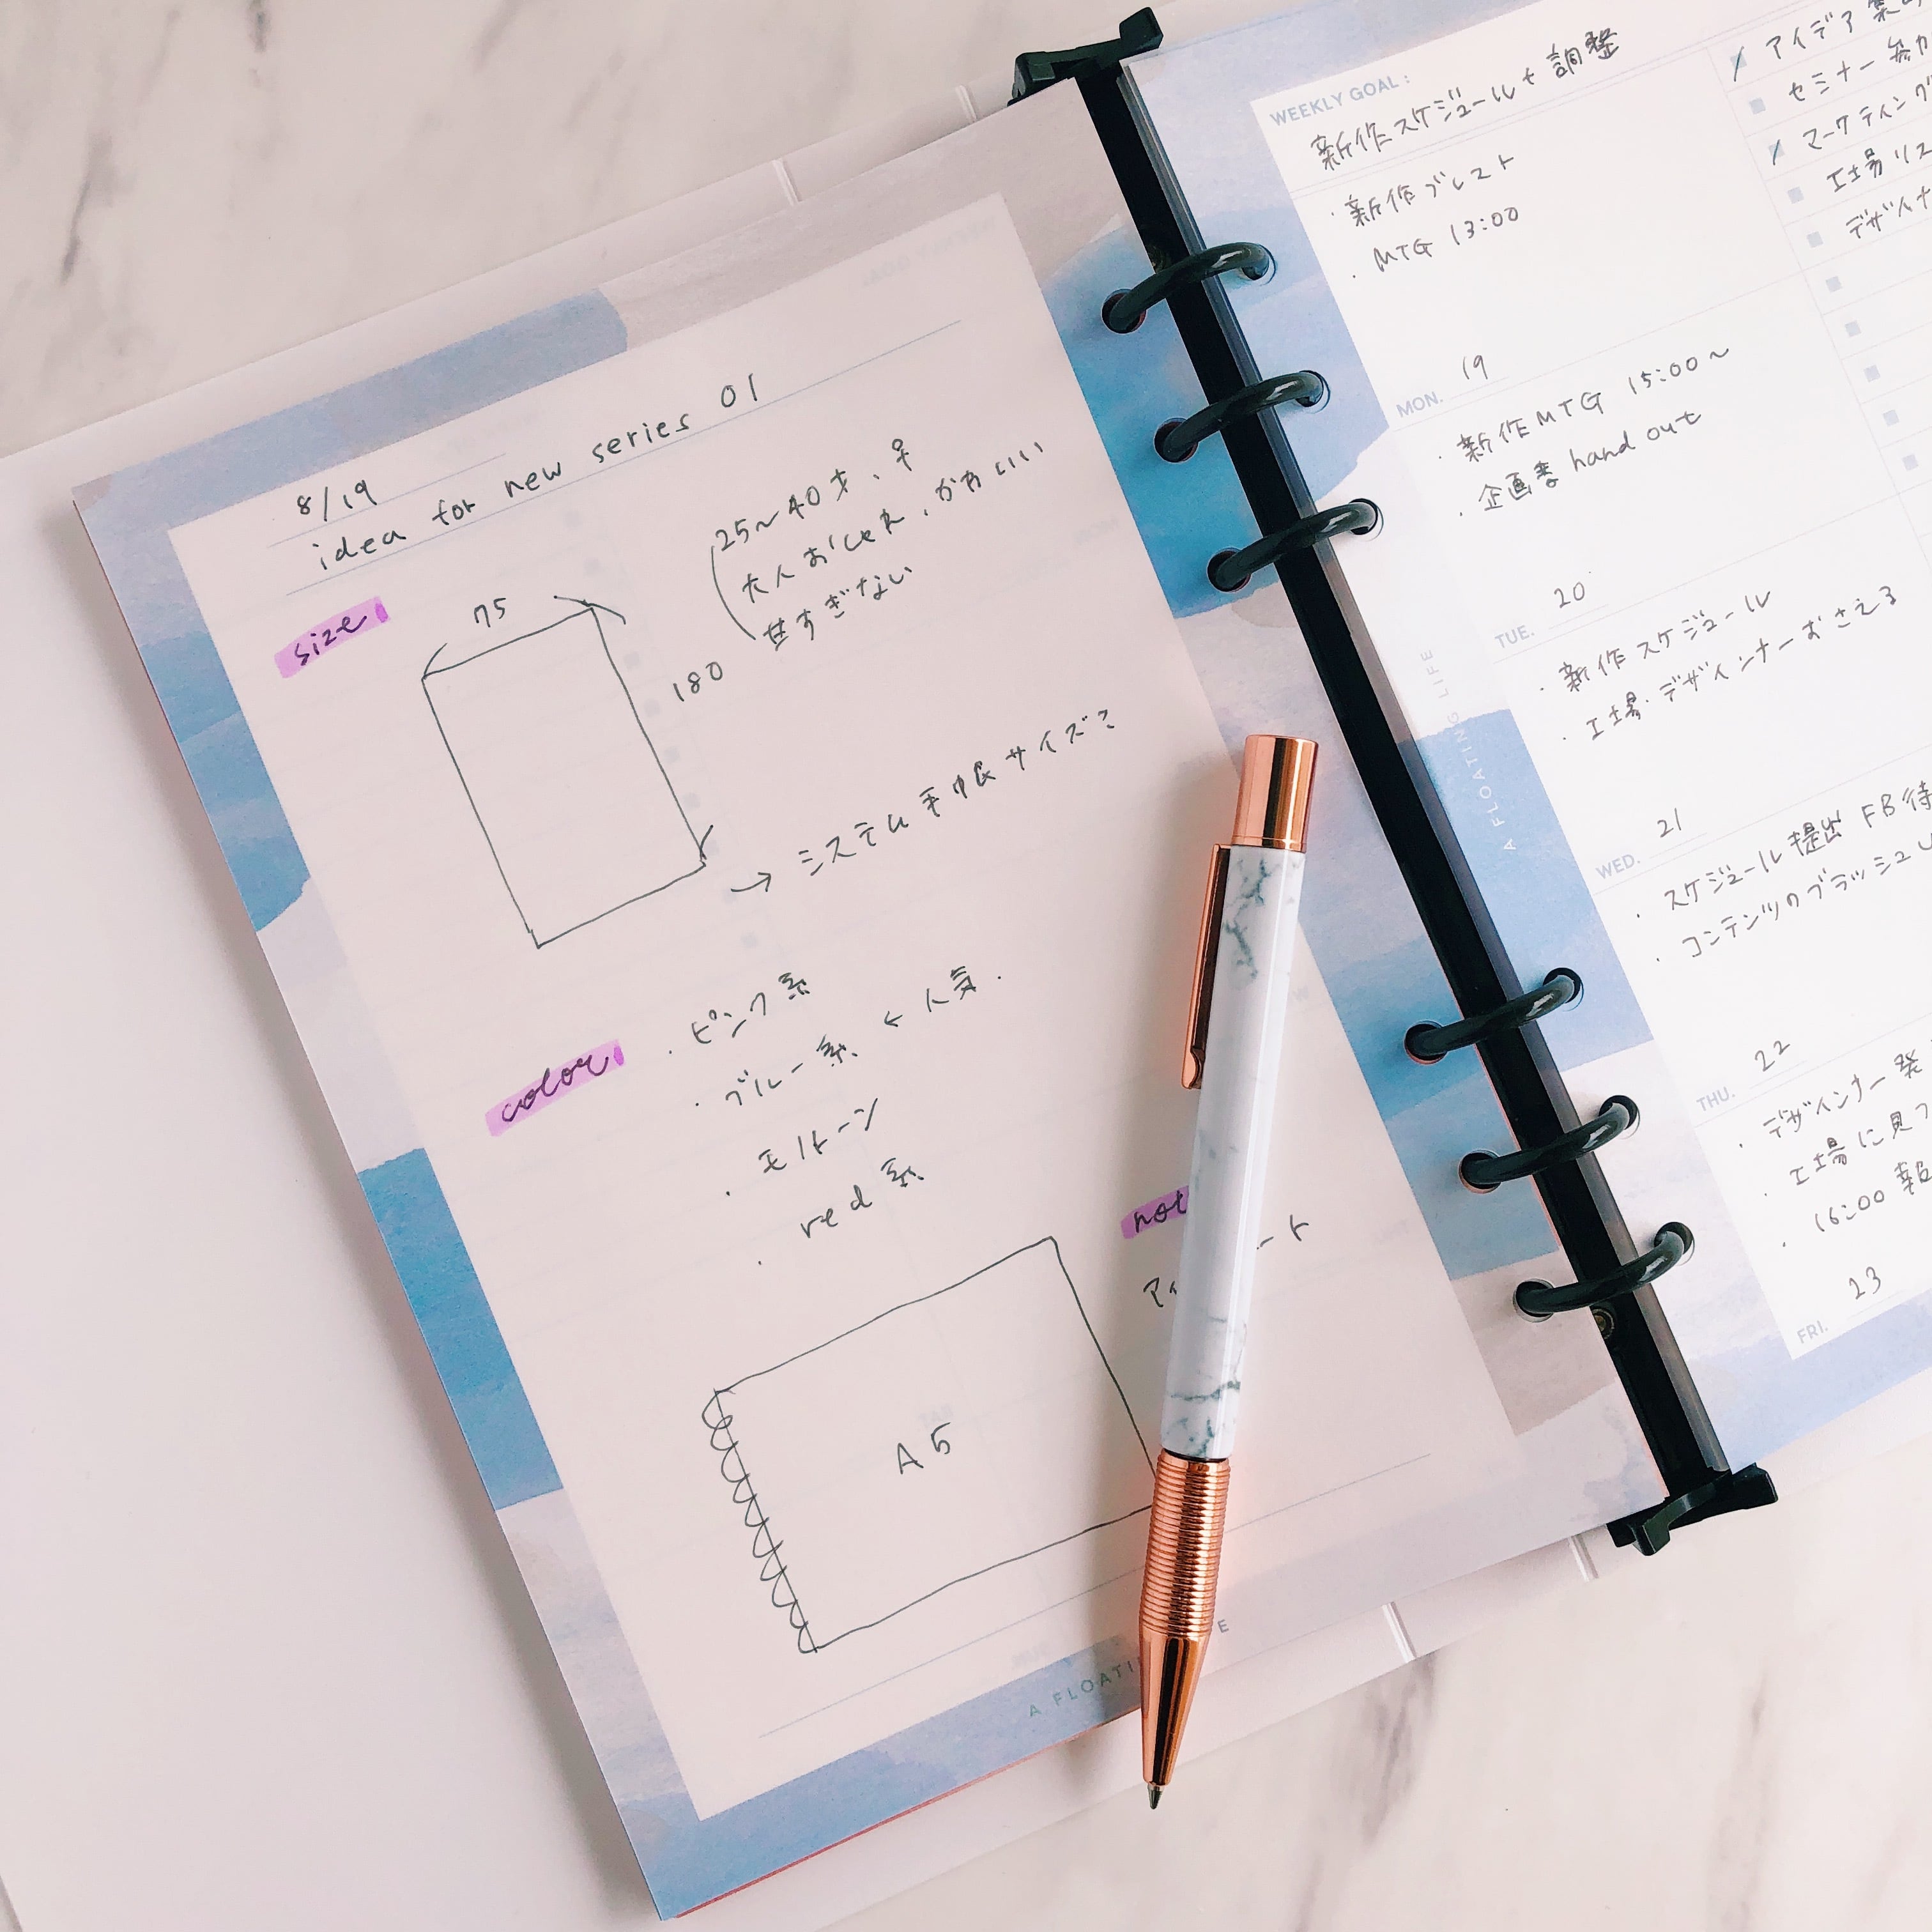 8/19
idea for new series 01
25~40才、♀
大人おしゃれ、かわいい
甘すぎない
size
75
180
→ システム手帳サイズ?
color
・ピンク系
・ブルー系 ← 人気.
・モノトーン
・red系
not
ート
アイ
A5
A FLOATI
E
WEEKLY GOAL:
新作スケジュール + 調整
・新作ブレスト
・MTG 13:00
MON. 19
・新作MTG 15:00~
・企画書 hand out
TUE. 20
・新作スケジュール
・工場・デザイナーおさえる
WED. 21
・スケジュール提出 FB待
・コンテンツのブラッシュ
THU. 22
・デザインナー発
・工場に見つ
・16:00 報
FRI. 23
アイデア
セミナー 参加
マーケティング
工場リス
デザイナ
A FLOATING LIFE